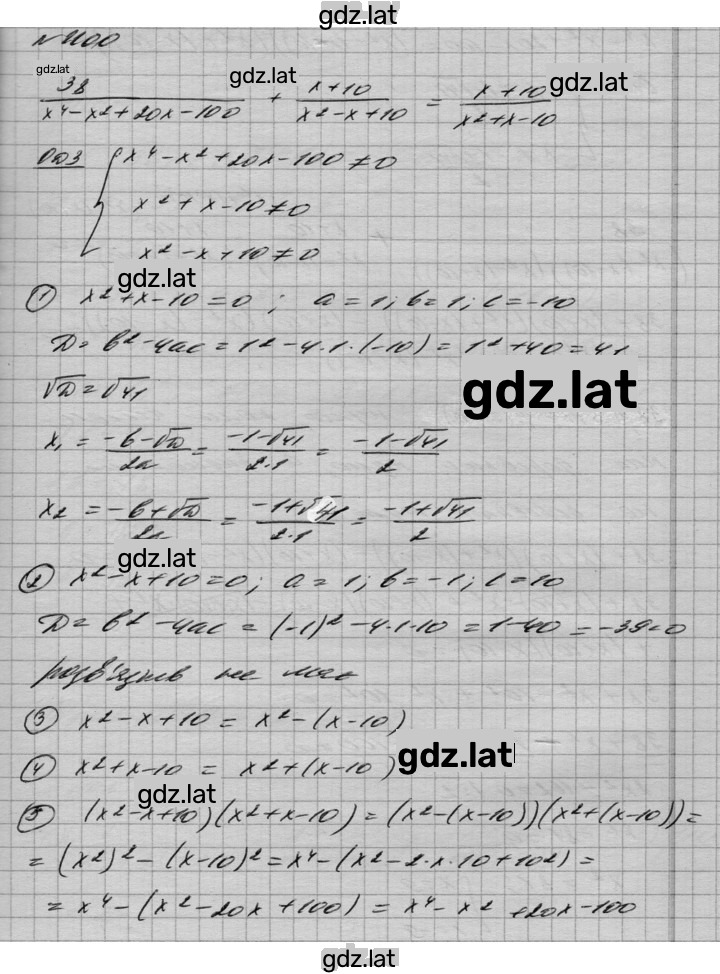 gdz.lat
№ 1100
gdz.lat gdz.lat gdz.lat
38/(x⁴-x²+20x-100) + (x+10)/(x²-x+10) = (x+10)/(x²+x-10)
ОДЗ { x⁴-x²+20x-100≠0
x²+x-10≠0
x²-x+10≠0
gdz.lat
① x²+x-10=0; a=1; b=1; c=-10
D=b²-4ac=1²-4·1·(-10)=1²+40=41
gdz.lat
√D=√41
x₁=(-b-√D)/2a=(-1-√41)/(2·1)=(-1-√41)/2
x₂=(-b+√D)/2a=(-1+√41)/(2·1)=(-1+√41)/2
gdz.lat
② x²-x+10=0; a=1; b=-1; c=10
D=b²-4ac=(-1)²-4·1·10=1-40=-39<0
розв'язків не має
③ x²-x+10=x²-(x-10)
gdz.lat
④ x²+x-10=x²+(x-10)
gdz.lat
⑤ (x²-x+10)(x²+x-10)=(x²-(x-10))(x²+(x-10))=
=(x²)²-(x-10)²=x⁴-(x²-2·x·10+10²)=
=x⁴-(x²-20x+100)=x⁴-x²+20x-100
gdz.lat